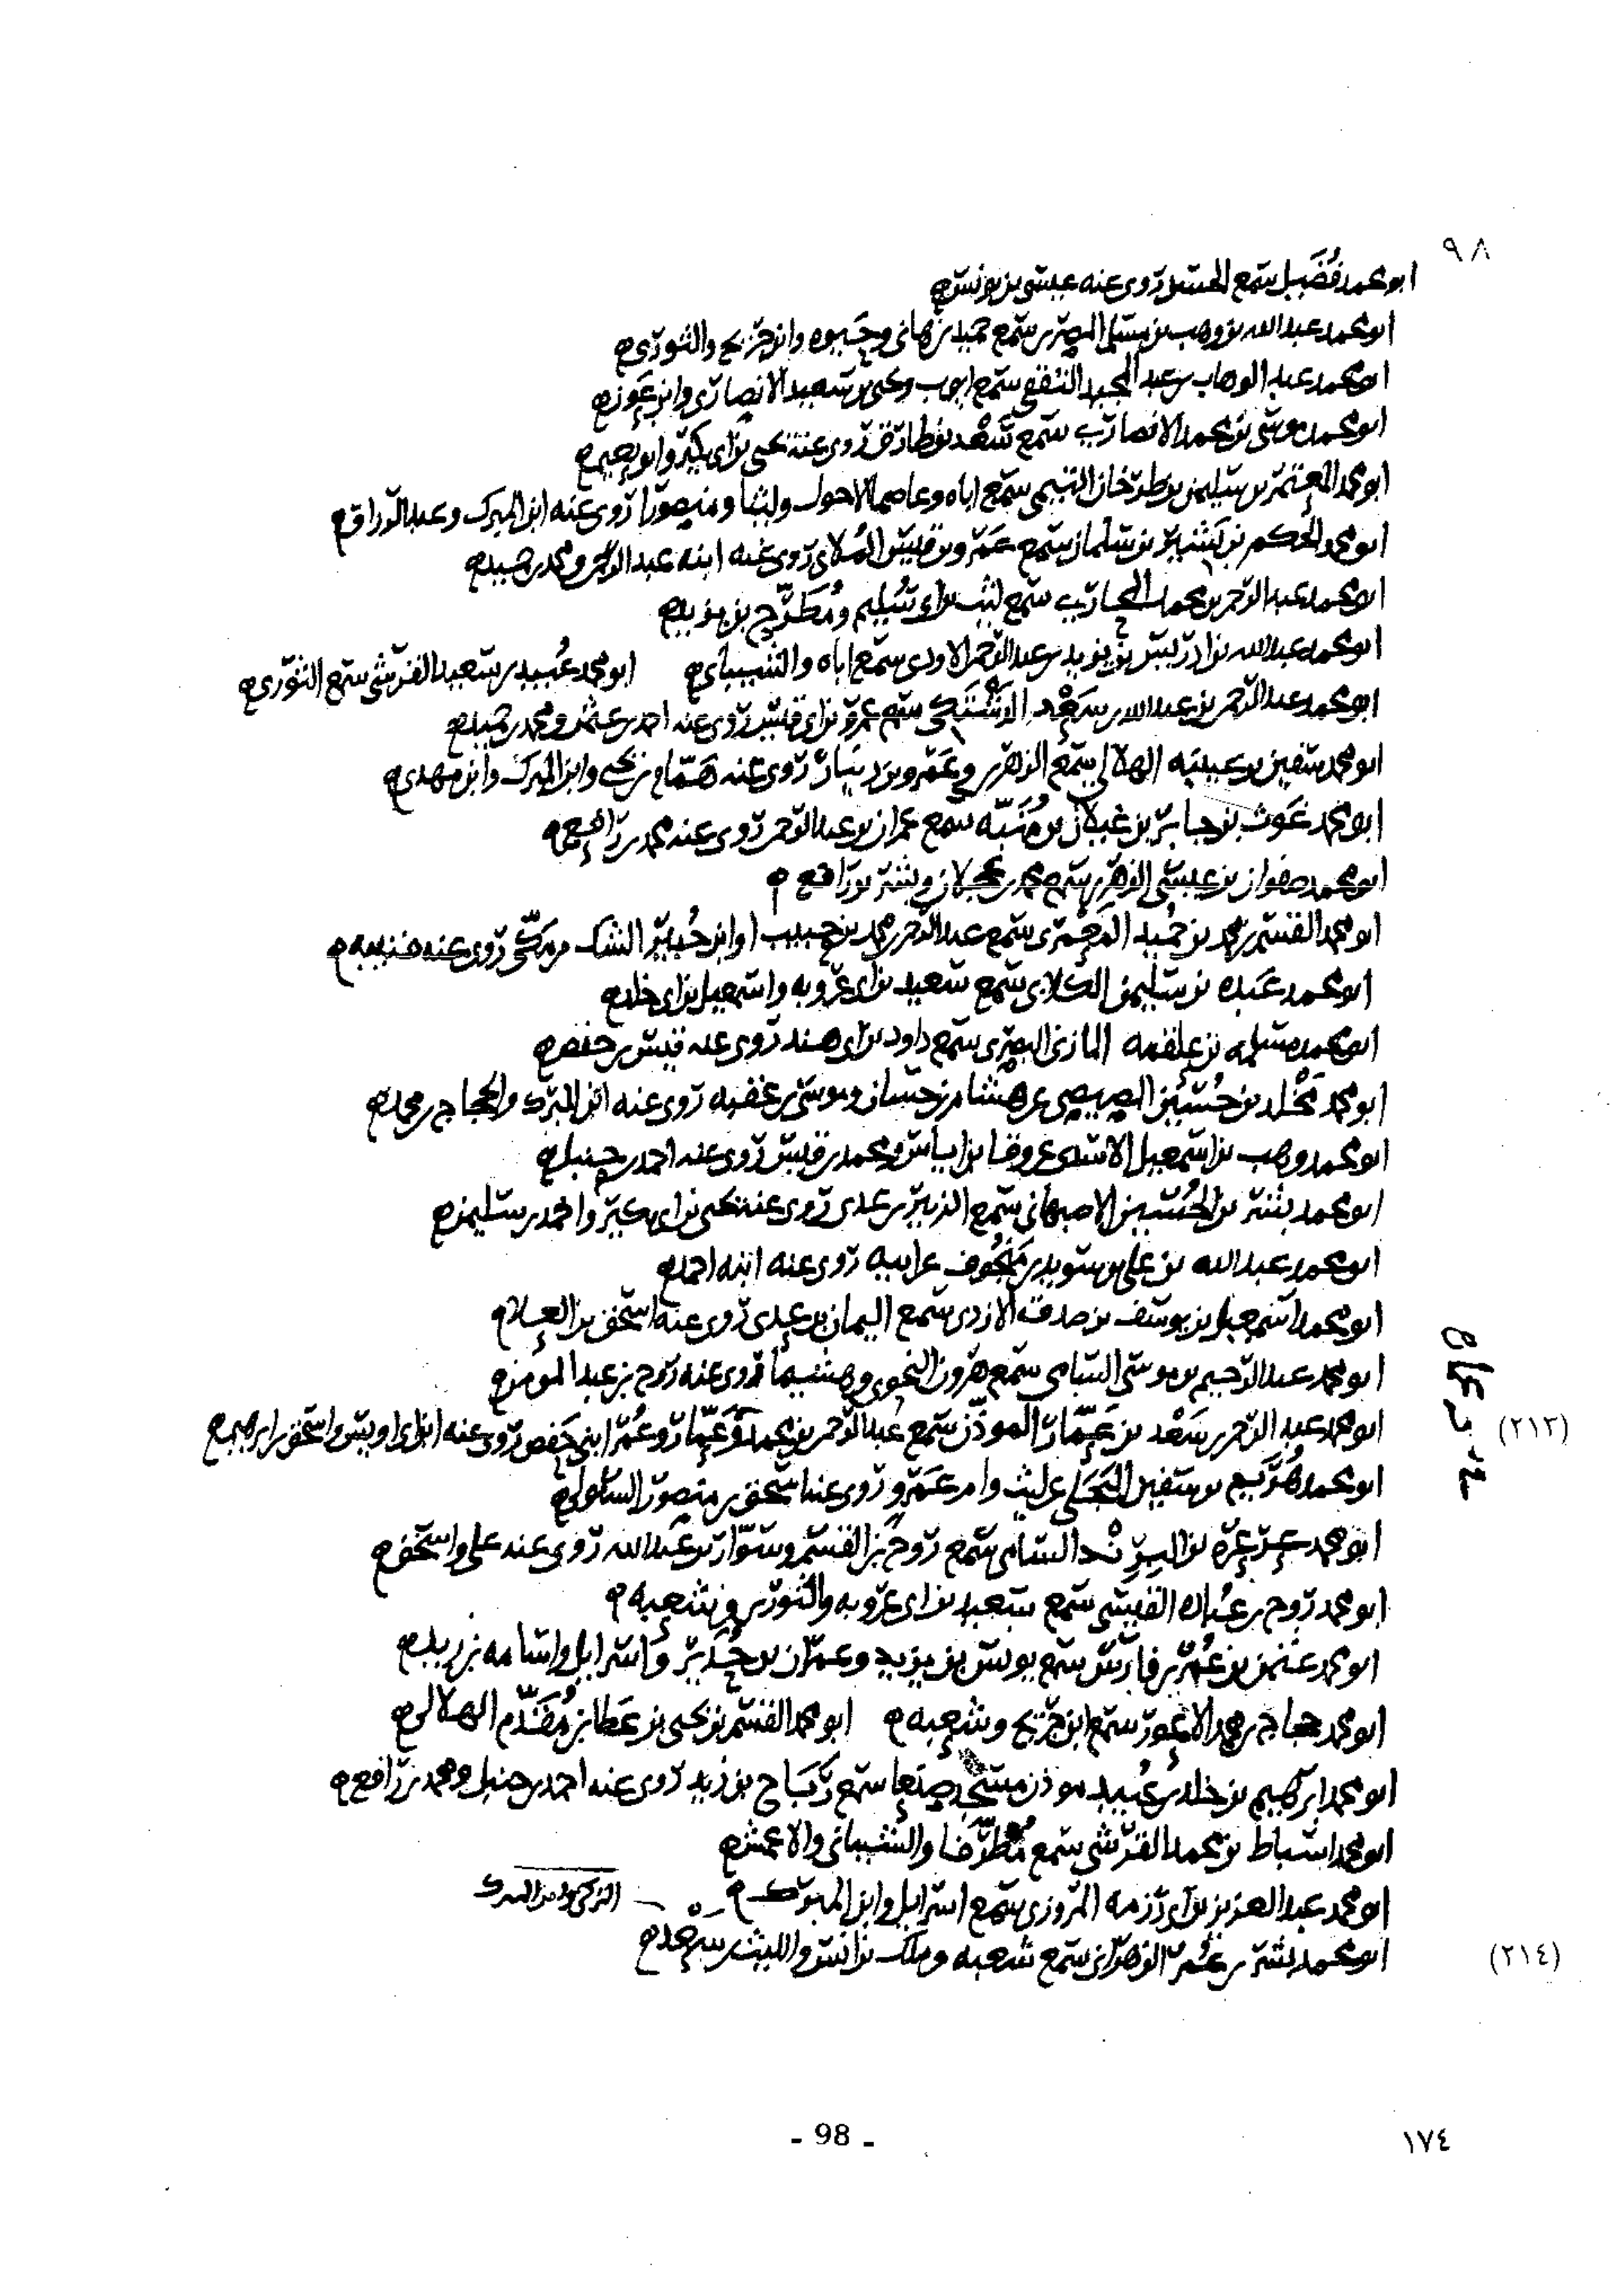 ٩٨
ابو محمد فُضَيل سمع الحسن روى عنه عيسى بن يونس
ابو محمد عبد الله بن وهب بن مسلم المصرى سمع حميد بن هانى وحَيوه وابن جريج والثورى
ابو محمد عبد الوهاب بن عبد المجيد الثقفى سمع ايوب ويحيى بن سعيد الانصارى وابن عَون
ابو محمد موسى بن محمد الانصارى سمع سَعْد بن طارق روى عنه يحيى بن ابى بكير وابو نعيم
ابو محمد المعتمر بن سليمن بن طرخان التيمى سمع اباه وعاصما الاحول وليثا ومنصورا روى عنه ابن المبرك وعبد الرزاق
ابو محمد الحكم بن بَشير بن سلمان سمع عمرو بن قيس المُلاى روى عنه ابنه عبد الرحمن ومحمد بن حميد
ابو محمد عبد الرحمن بن محمد المحاربى سمع ليث بن ابى سُليم ومُطَرِّح بن يزيد
ابو محمد عبد الله بن ادريس بن يزيد بن عبد الرحمن الاودى سمع اباه والشيبانى ابو محمد عُبيد بن سعيد القرشى سمع الثورى
ابو محمد عبد الرحمن بن عبد الله بن سَعْد الدَشْتَكى سمع عمرو بن ابى قيس روى عنه احمد بن عثمن ومحمد بن حميد
ابو محمد سفين بن عيينه الهلالى سمع الزهرى وعمرو بن دينار روى عنه همّام بن يحيى وابن المبرك وابن مهدى
ابو محمد غَوث بن جابر بن غيلان بن مُنَبّه سمع عمران بن عبد الرحمن روى عنه محمد بن رافع
ابو محمد صفوان بن عيسى الزهرى سمع محمد بن عجلان وبشر بن رافع
ابو محمد القسم بن محمد بن حميد المعمرى سمع عبد الرحمن بن محمد بن حبيب (او ابن حُبيّر الشك من مكى روى عنه قتيبه
ابو محمد عَبده بن سليمن الكلابى سمع سعيد بن ابى عروبه واسمعيل بن ابى خلد
ابو محمد مسلمه بن علقمه المازنى البصرى سمع داود بن ابى هند روى عنه قيس بن حفص
ابو محمد مَخْلد بن حُسَين المصيصى عن هشام بن حسان وموسى بن عقبه روى عنه ابن المبرك والحجاج بن محمد
ابو محمد وهب بن اسمعيل الاسدى عن وقا بن اياس ومحمد بن قيس روى عنه احمد بن حنبل
ابو محمد بشر بن الحُسَين الاصبهانى سمع الزبير بن عدى روى عنه يحيى بن ابى بكير واحمد بن سليمن
ابو محمد عبد الله بن على بن سويد بن مَنْجُوف عن ابيه روى عنه ابنه احمد
ابو محمد اسمعيل بن يوسف بن صدقه الازدى سمع اليمان بن عدى روى عنه اسحق بن العلا
ابو محمد عبد الرحيم بن موسى السامى سمع هرون النحوى وهشيما روى عنه روح بن عبد المومن
(٢١٣) ابو محمد عبد الرحمن بن سَعْد بن عَمّار الموذن سمع عبد الرحمن بن محمد وعمّار وعُمر ابنى حَفص روى عنه ابن ابى اويس واسحق بن ابرهيم
ابو محمد هُرَيم بن سفين البَجَلى عن ليث وام عمرو روى عنه اسحق بن منصور السلولى
ابو محمد عرعره بن البِرِنْد السامى سمع روح بن القسم وسوّار بن عبد الله روى عنه على واسحق
ابو محمد روح بن عُباده القيسى سمع سعيد بن ابى عروبه والثورى وشعبه
ابو محمد عثمن بن عُمر بن فارس سمع يونس بن يزيد وعمران بن حُدير واسرايل واسامه بن زيد
ابو محمد حجاج بن محمد الاعور سمع ابن جريج وشعبه ابو محمد القسم بن يحيى بن عَطا بن مُقَدّم الهلالى
ابو محمد ابرهيم بن خلد بن عُبيد موذن مسجد صنعا سمع رَباح بن زيد روى عنه احمد بن حنبل ومحمد بن رافع
ابو محمد اسباط بن محمد القرشى سمع مُطرّفا والشيبانى والاعمش
ابو محمد عبد العزيز بن ابى رزمه المروزى سمع اسرايل وابن المبرك
(٢١٤) ابو محمد بشر بن عُمر الزهرانى سمع شعبه وملك بن انس والليث بن سعد
- 98 -
١٧٤